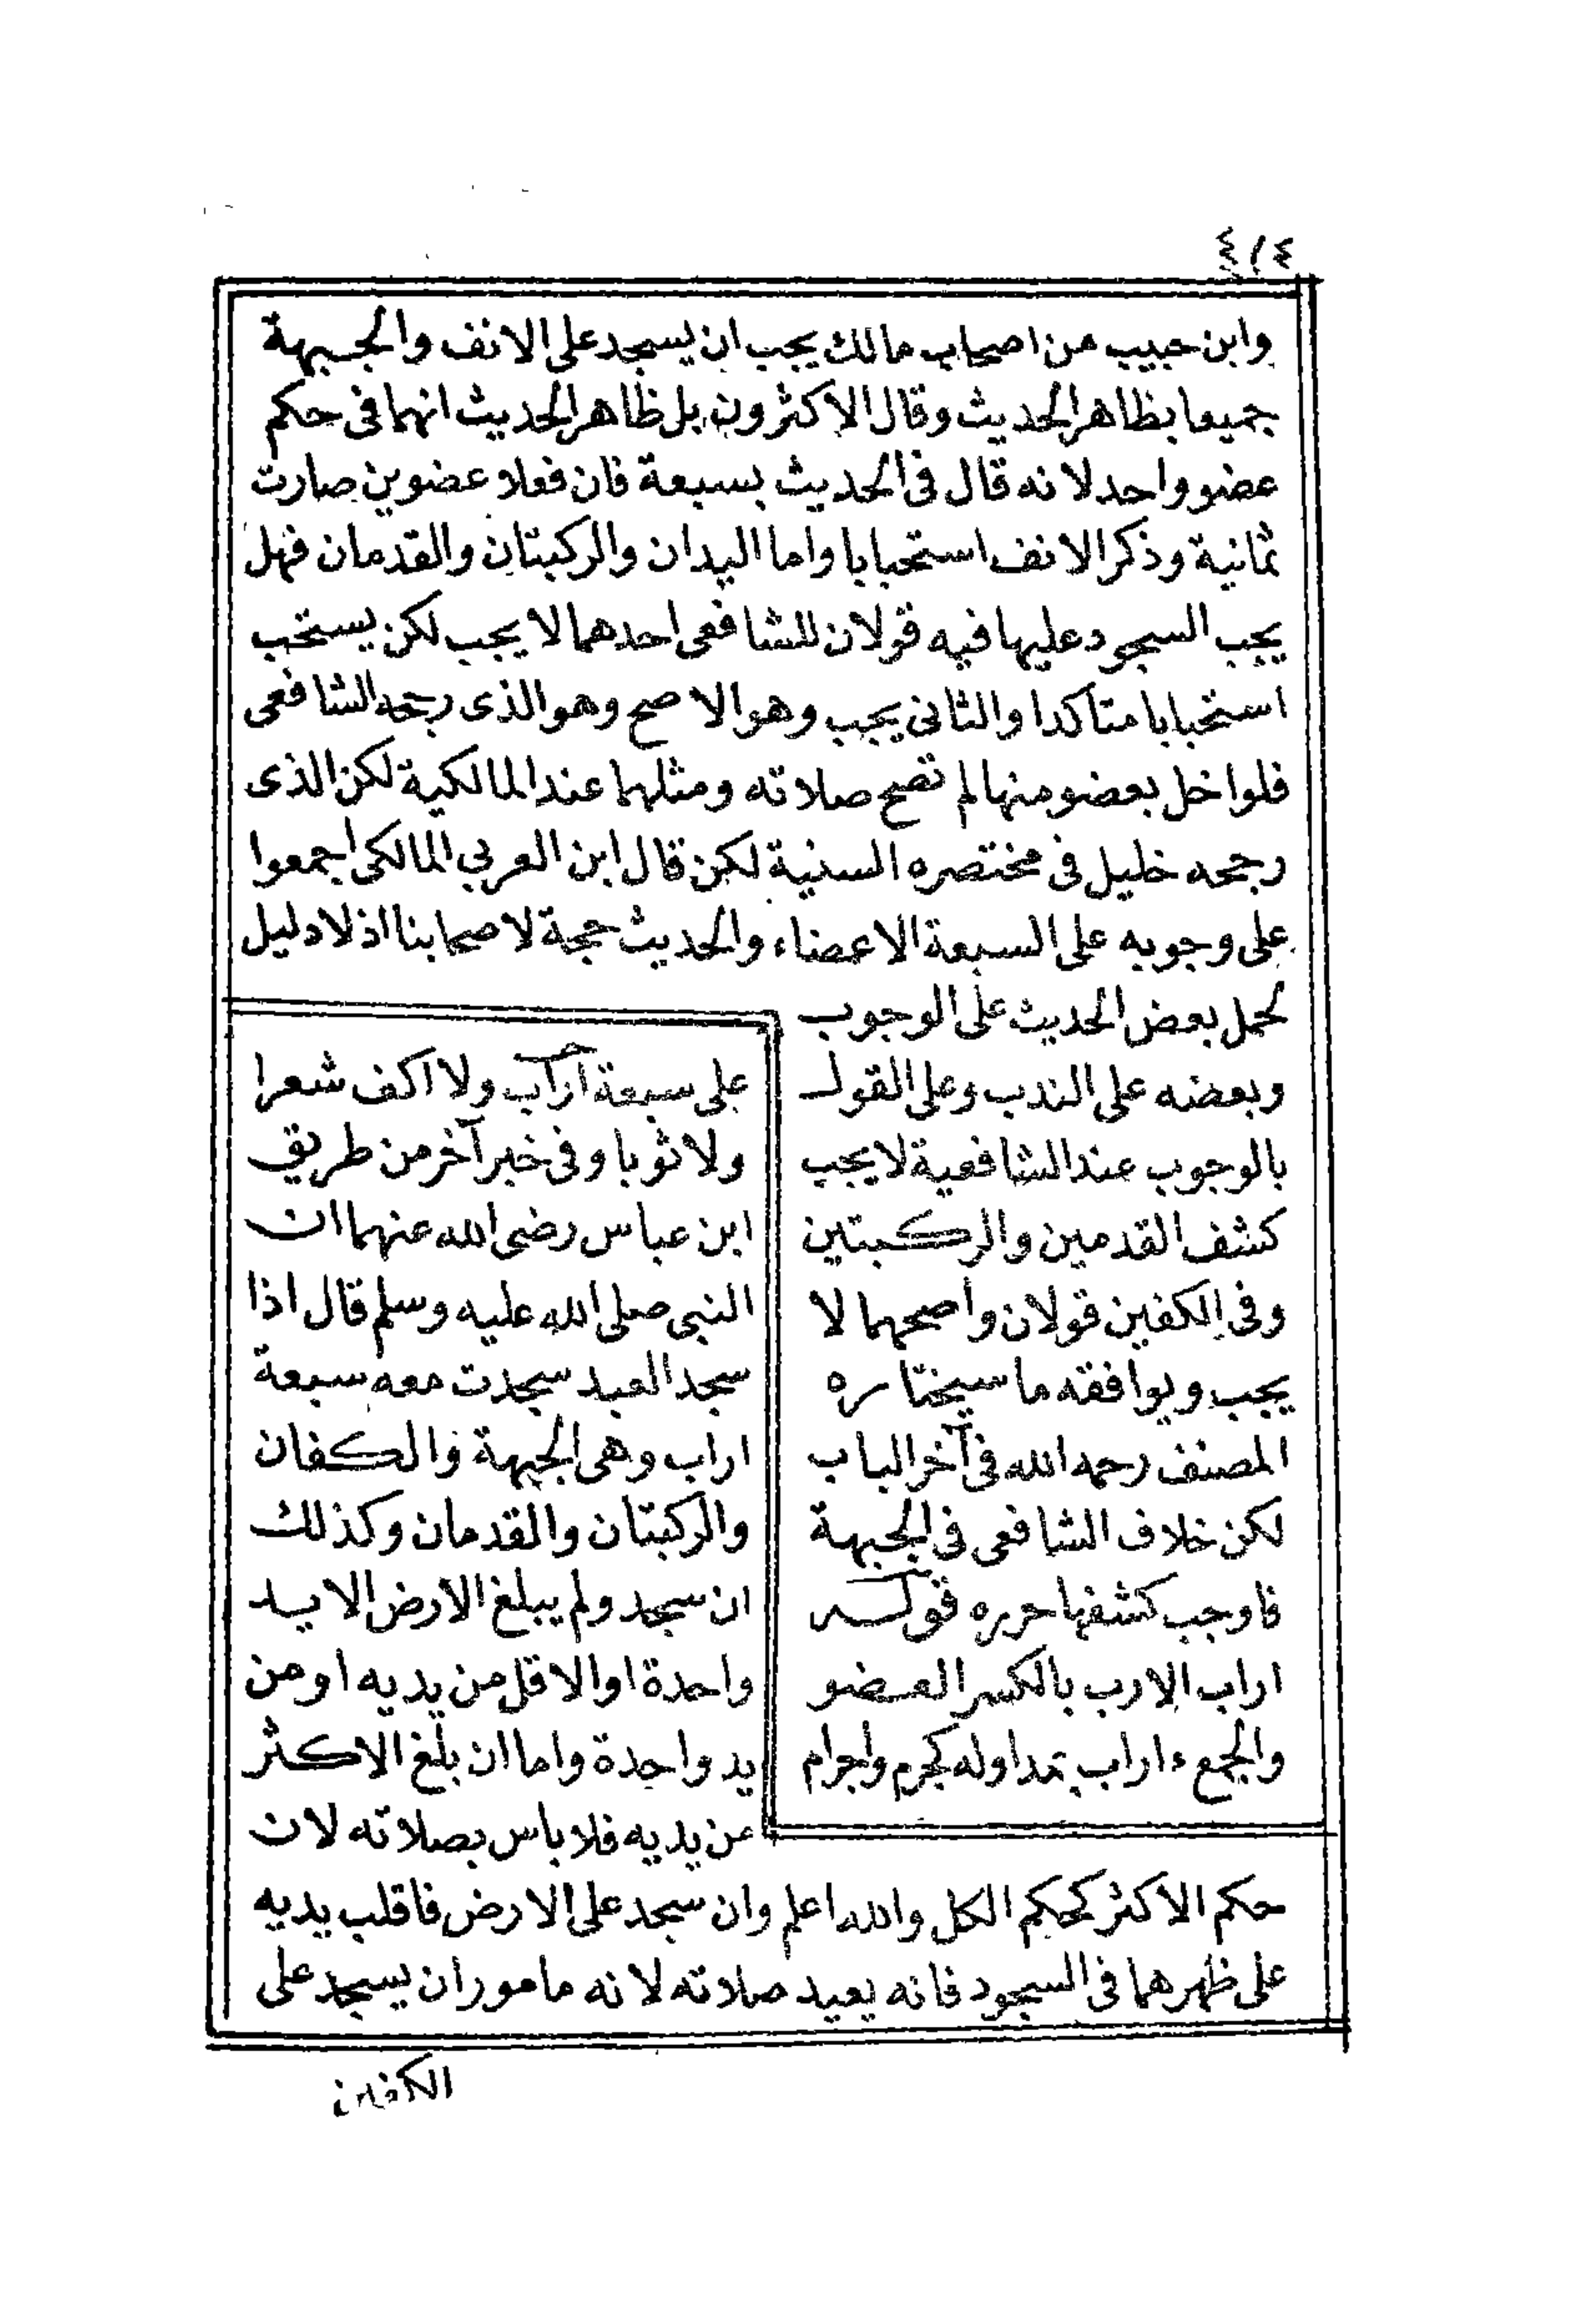 ٤١٤
وابن حبيب من اصحاب مالك يجب ان يسجد على الانف والجبهة
جميعا بظاهر الحديث وقال الاكثرون بل ظاهر الحديث انهما في حكم
عضو واحد لانه قال في الحديث بسبعة فان فعلا عضوين صارت
ثمانية وذكر الانف استحبابا واما اليدان والركبتان والقدمان فهل
يجب السجود عليها فيه قولان للشافعى احدهما لا يجب لكن يستحب
استحبابا متأكدا والثانى يجب وهو الاصح وهو الذى رجحه الشافعى
فلو اخل بعضو منها لم تصح صلاته ومثلهما عند المالكية لكن الذى
رجحه خليل في مختصره السنية لكن قال ابن العربي المالكى اجمعوا
على وجوبه على السبعة الاعضاء والحديث حجة لاصحابنا اذ لا دليل
لحمل بعض الحديث على الوجوب
وبعضه على الندب وعلى القول
بالوجوب عند الشافعية لا يجب
كشف القدمين والركبتين
وفي الكفين قولان واصحهما لا
يجب ويوافقه ما سيختاره
المصنف رحمه الله في آخر الباب
لكن خلاف الشافعى في الجبهة
فاوجب كشفها حرره قوله
اراب الارب بالكسر العضو
والجمع ءاراب بمد اوله كجرم واجرام
على سبعة آراب ولا اكف شعرا
ولا ثوبا وفي خبر آخر من طريق
ابن عباس رضى الله عنهما ان
النبى صلى الله عليه وسلم قال اذا
سجد العبد سجدت معه سبعة
اراب وهى الجبهة والكفان
والركبتان والقدمان وكذلك
ان سجد ولم يبلغ الارض الا يد
واحدة او الاقل من يديه او من
يد واحدة واما ان بلغ الاكثر
من يديه فلا باس بصلاته لان
حكم الاكثر كحكم الكل والله اعلم وان سجد على الارض فاقلب يديه
على ظهرهما في السجود فانه يعيد صلاته لانه مامور ان يسجد على
الكفين